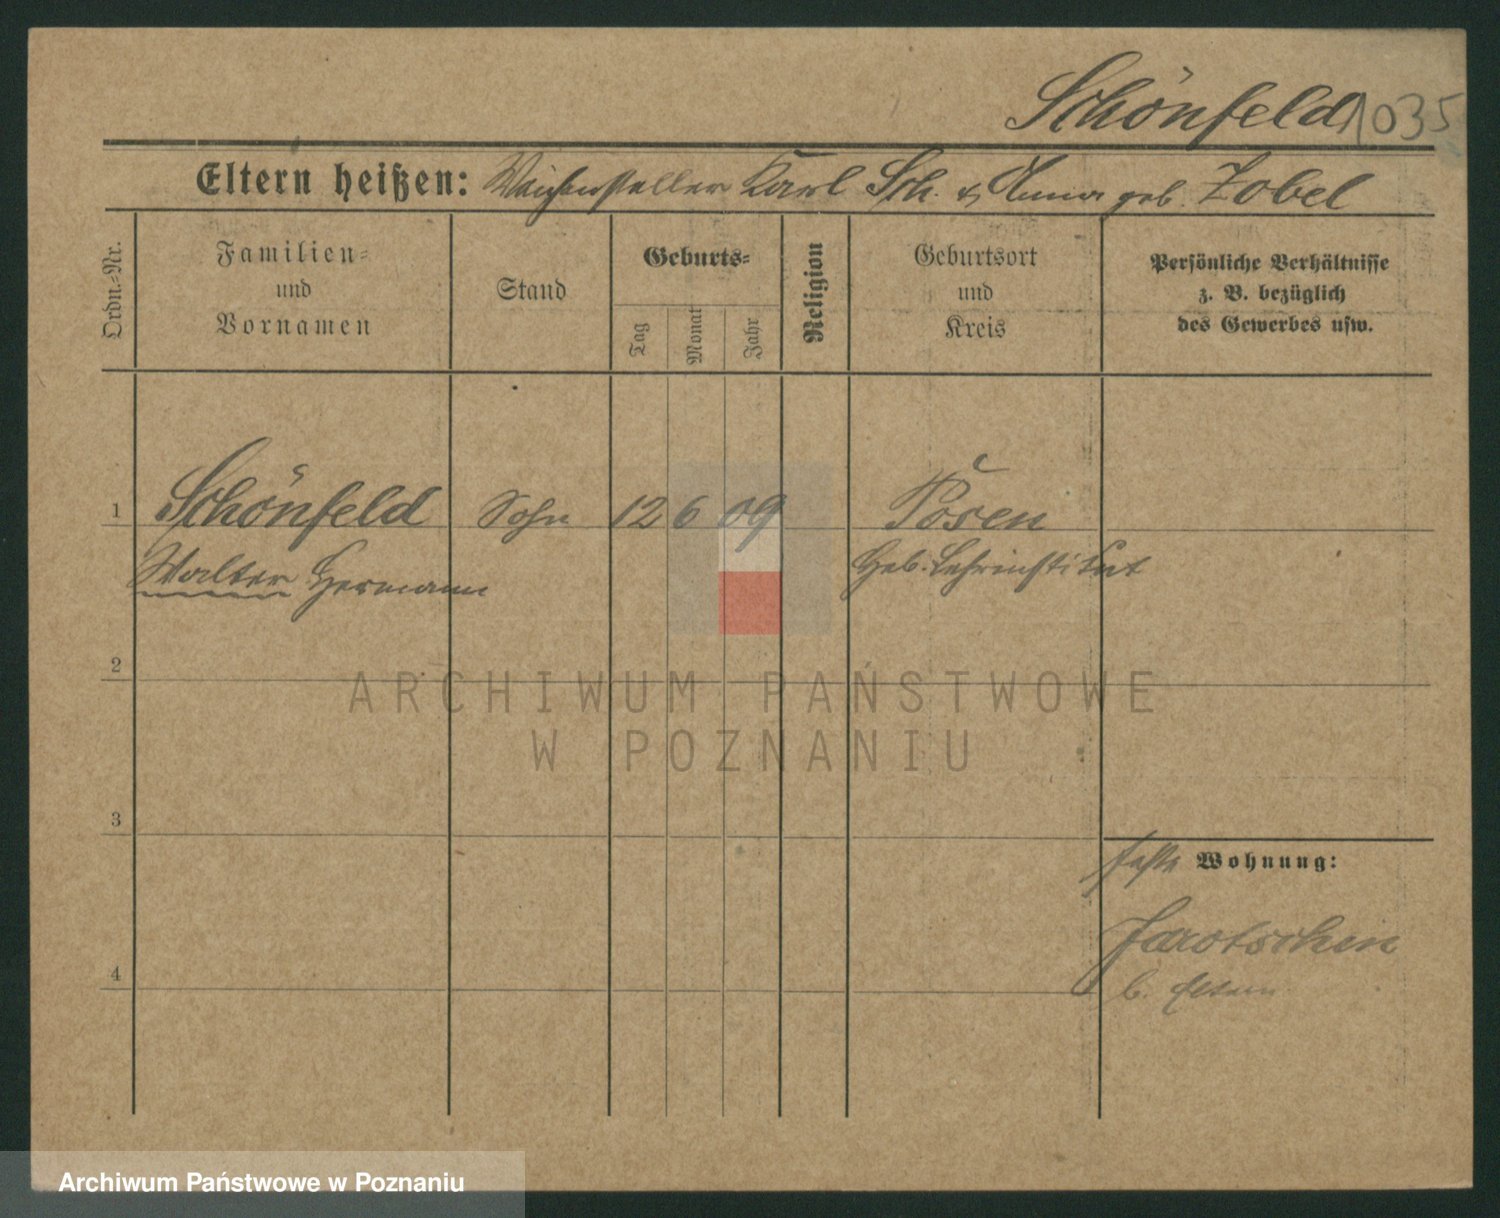 Schönfeld 1035
Eltern heißen: Weichensteller Karl Sch. & Anna geb. Zobel
Ordn.-Nr.
Familien-
und
Vornamen
Stand
Geburts-
Tag
Monat
Jahr
Religion
Geburtsort
und
Kreis
Persönliche Verhältnisse
z. B. bezüglich
des Gewerbes usw.
1 Schönfeld Sohn 12 6 09 Posen
Walter Hermann Heb. Lehrinstitut
2
ARCHIWUM PAŃSTWOWE
W POZNANIU
3
feste Wohnung:
Jarotschin
4
b. Eltern
Archiwum Państwowe w Poznaniu